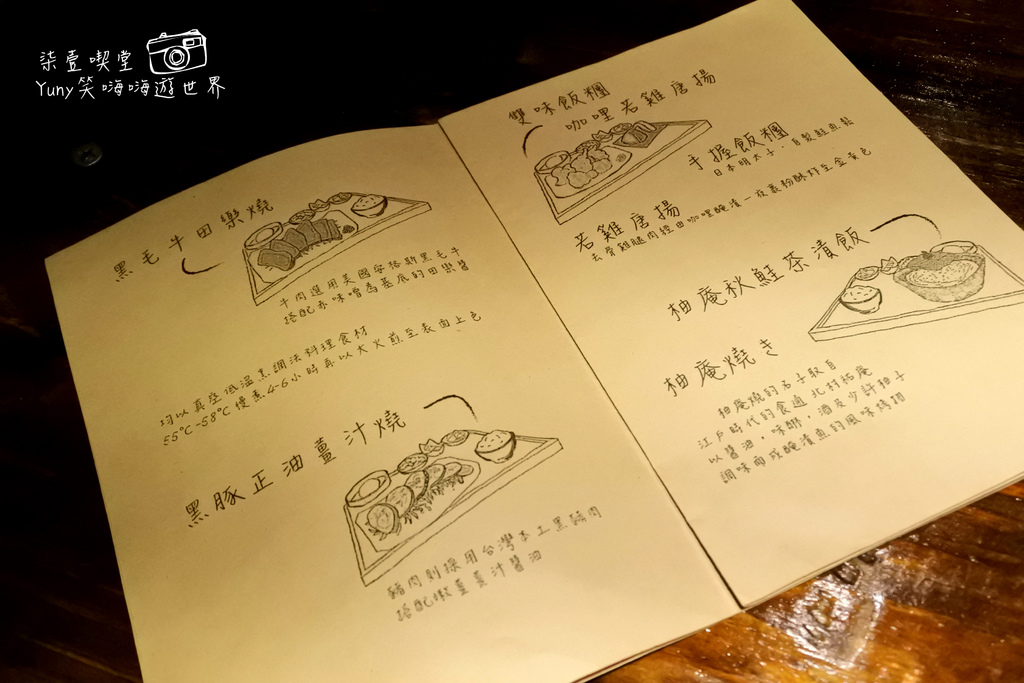 柒壹喫堂
Yuny笑嗨嗨遊世界
黑毛牛田樂燒
牛肉選用美國安格斯黑毛牛
搭配赤味噌為基底的田樂醬
均以真空低溫烹調法料理食材
55°C-58°C慢煮4-6小時再以大火煎至表面上色
黑豚正油薑汁燒
豬肉則採用台灣本土黑豬肉
搭配嫩薑薑汁醬油
雙味飯糰
咖哩若雞唐揚
手握飯糰
日本明太子,自製鮭魚鬆
若雞唐揚
去骨雞腿肉經由咖哩醃漬一夜裹粉酥炸至金黃色
柚庵秋鮭茶漬飯
柚庵燒き
柚庵燒的名子取自
江戶時代的食通 北村祐庵
以醬油,味醂,酒及少許柚子
調味而成醃漬魚的風味燒烤